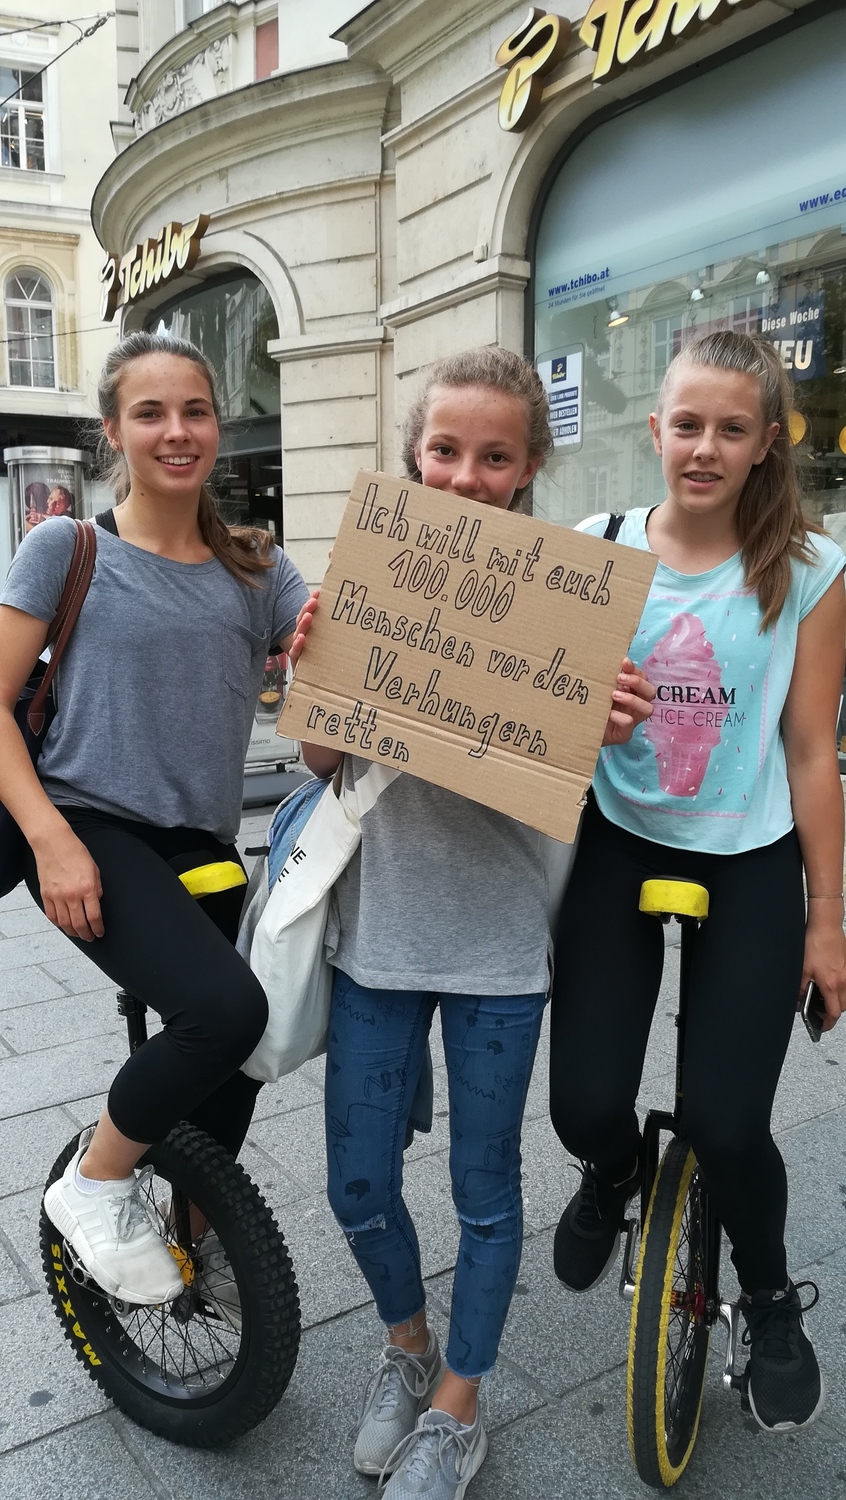 Tchibo
Tchibo
www.tchibo.at
24 Stunden für Sie geöffnet
Diese Woche
NEU
Ich will mit euch
100.000
Menschen vor dem
Verhungern
retten
CREAM
ICE CREAM
MAXXIS